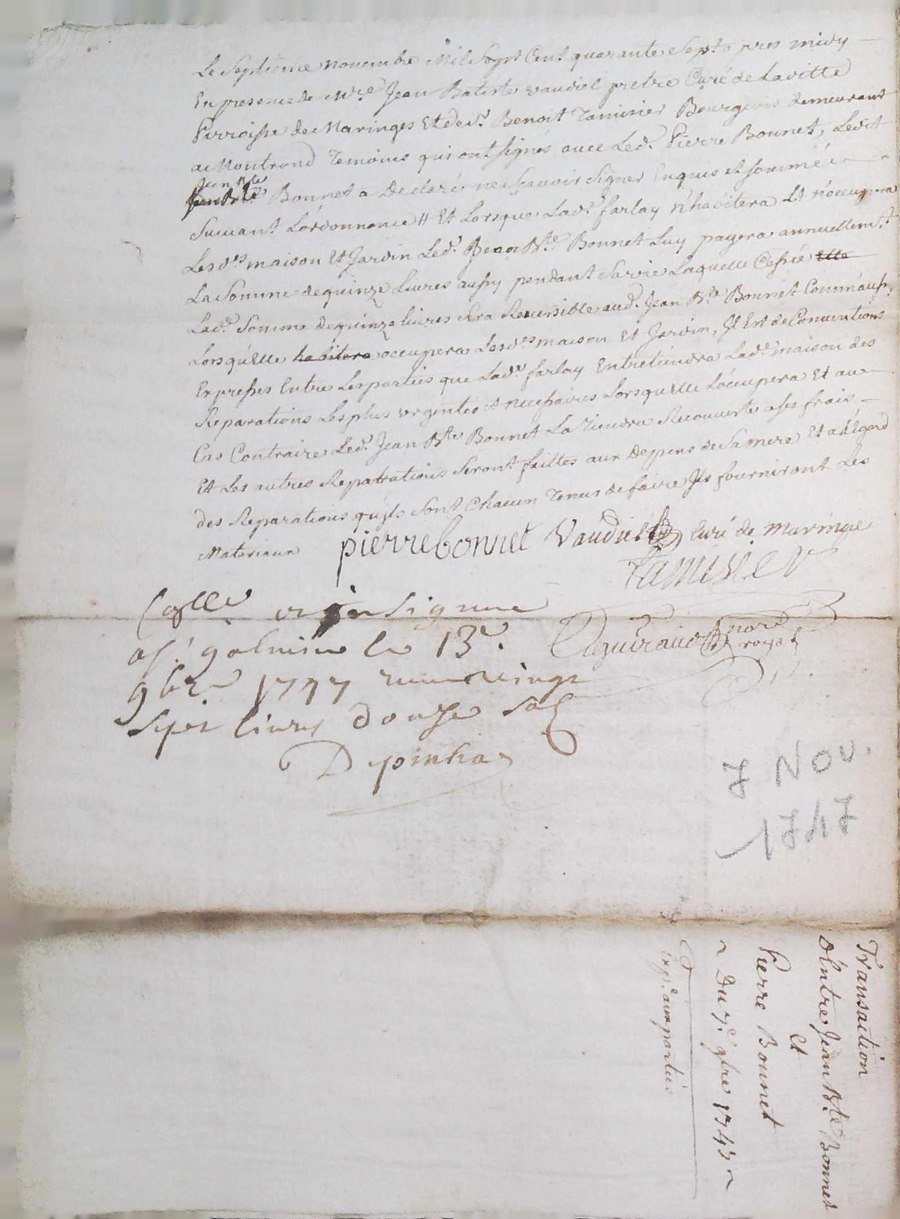 Le Septième novembre Mil Sept Cent quarante Sept apres midy
En presence de Mre Jean Batiste vaudiel pretre Curé de Lavitte
Parroisse de Maringes Et de sr. Benoit Taminier Bourgeois demeurant
a Montrond Temoins qui ont signés avec Led. Pierre Bonnet, Ledit
Jean Bte
Bonnet a Declaré ne Sçavoir Signer Enquis et Sommé
Suivant L'ordonnance // Et Lorsque Lade. farlay n'habitera Et n'occupera
Les ds. maison Et Jardin Led. Jean Bte Bonnet Luy payera annuellemt.
La Somme de quinze livres aussy pendant Sa vie Laquelle Cessée elle
Lade. Somme de quinze livres sera Reversible aud. Jean Bte Bonnet Comm'aussy
Lorsqu'elle habitera occupera Les ds. maison Et Jardin, Il Est de Conventions
Expresses Entre Les parties que Lade. farlay Entretiendra Lade. maison des
Reparations Les plus urgentes et necessaires Lorsqu'elle L'occupera Et au
Cas Contraire Led. Jean Bte Bonnet La Tiendra Recouverte a ses frais
Et Les autres Repatrations Seront faittes aux Deppens de Sa mere Et a L'egard
des Reparations qu'ils Sont Chacun Tenus de faire Ils fourniront Les
Materiaux
pierre bonnet Vaudiel Curé de Maringe
Taminier
Collé
Daguiraud nore royal
galmier le 13e.
9bre 1747 vingt
Sept livres douze sols
Depinha
7 NOV.
1747
Transaction
d'Entre Jean Bte Bonnet
et
Pierre Bonnet
Du 7e. 9bre 1747
Exp. aux parties